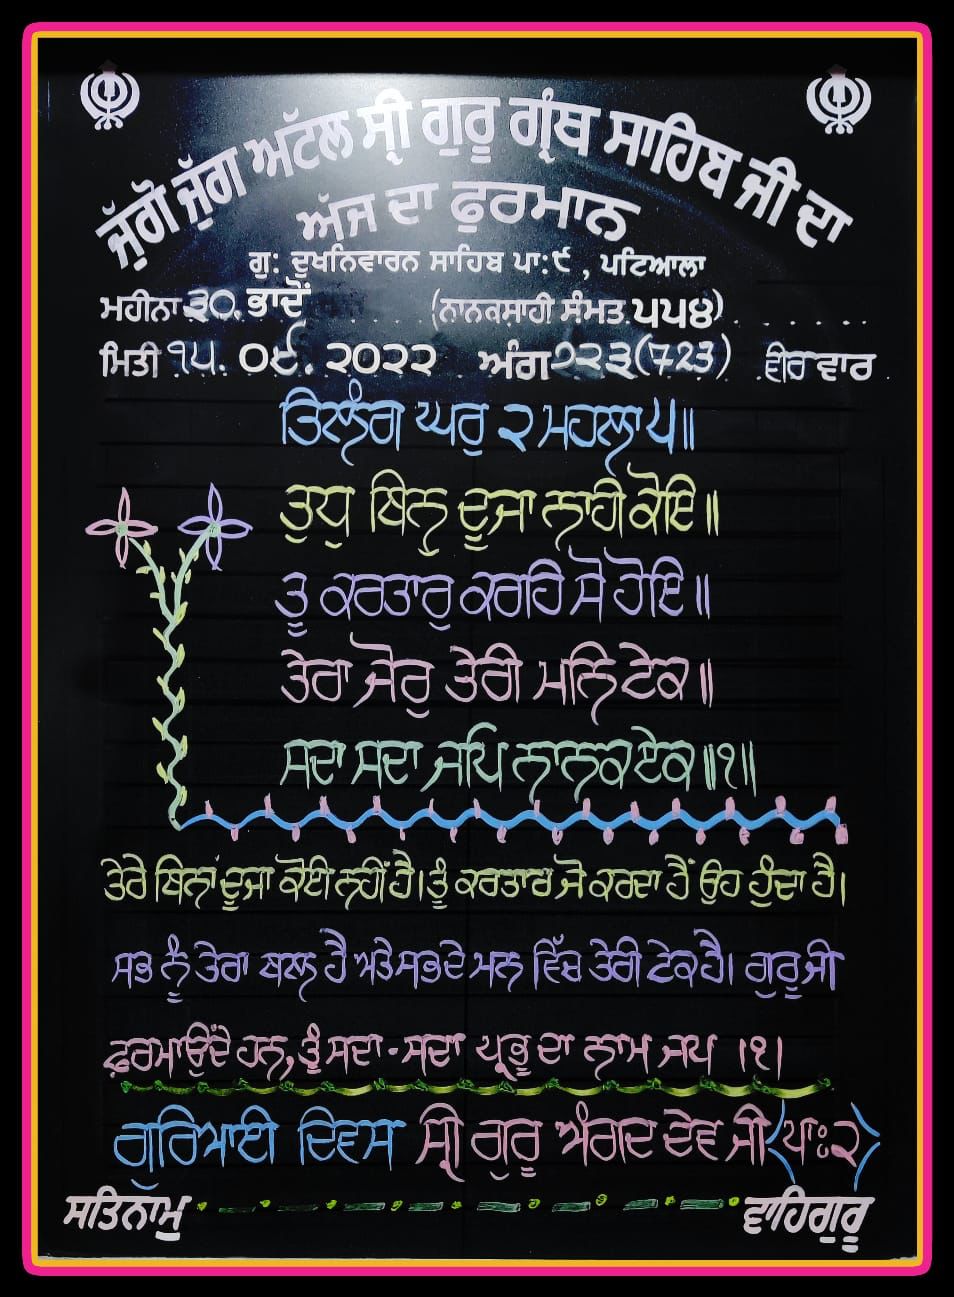 ਜੁੱਗੋ ਜੁੱਗ ਅਟੱਲ ਸ੍ਰੀ ਗੁਰੂ ਗ੍ਰੰਥ ਸਾਹਿਬ ਜੀ ਦਾ
ਅੱਜ ਦਾ ਫੁਰਮਾਨ
ਗੁ: ਦੁਖਨਿਵਾਰਨ ਸਾਹਿਬ ਪਾ:੯ , ਪਟਿਆਲਾ
ਮਹੀਨਾ ੩੦. ਭਾਦੋਂ (ਨਾਨਕਸ਼ਾਹੀ ਸੰਮਤ ੫੫੪)
ਮਿਤੀ ੧੫. ੦੯. ੨੦੨੨ ਅੰਗ ੭੨੩(723) ਵੀਰ ਵਾਰ
ਤਿਲੰਗ ਘਰੁ ੨ ਮਹਲਾ ੫॥
ਤੁਧੁ ਬਿਨੁ ਦੂਜਾ ਨਾਹੀ ਕੋਇ॥
ਤੂ ਕਰਤਾਰੁ ਕਰਹਿ ਸੋ ਹੋਇ॥
ਤੇਰਾ ਜੋਰੁ ਤੇਰੀ ਮਨਿ ਟੇਕ॥
ਸਦਾ ਸਦਾ ਜਪਿ ਨਾਨਕ ਏਕ॥੧॥
ਤੇਰੇ ਬਿਨਾਂ ਦੂਜਾ ਕੋਈ ਨਹੀਂ ਹੈ। ਤੂੰ ਕਰਤਾਰ ਜੋ ਕਰਦਾ ਹੈਂ ਉਹ ਹੁੰਦਾ ਹੈ।
ਸਭ ਨੂੰ ਤੇਰਾ ਬਲ ਹੈ ਅਤੇ ਸਭਦੇ ਮਨ ਵਿੱਚ ਤੇਰੀ ਟੇਕ ਹੈ। ਗੁਰੂ ਜੀ
ਫ਼ਰਮਾਉਂਦੇ ਹਨ, ਤੂੰ ਸਦਾ-ਸਦਾ ਪ੍ਰਭੂ ਦਾ ਨਾਮ ਜਪ ।੧।
ਗੁਰਿਆਈ ਦਿਵਸ ਸ੍ਰੀ ਗੁਰੂ ਅੰਗਦ ਦੇਵ ਜੀ (ਪਾਃ ੨)
ਸਤਿਨਾਮੁ ਵਾਹਿਗੁਰੂ